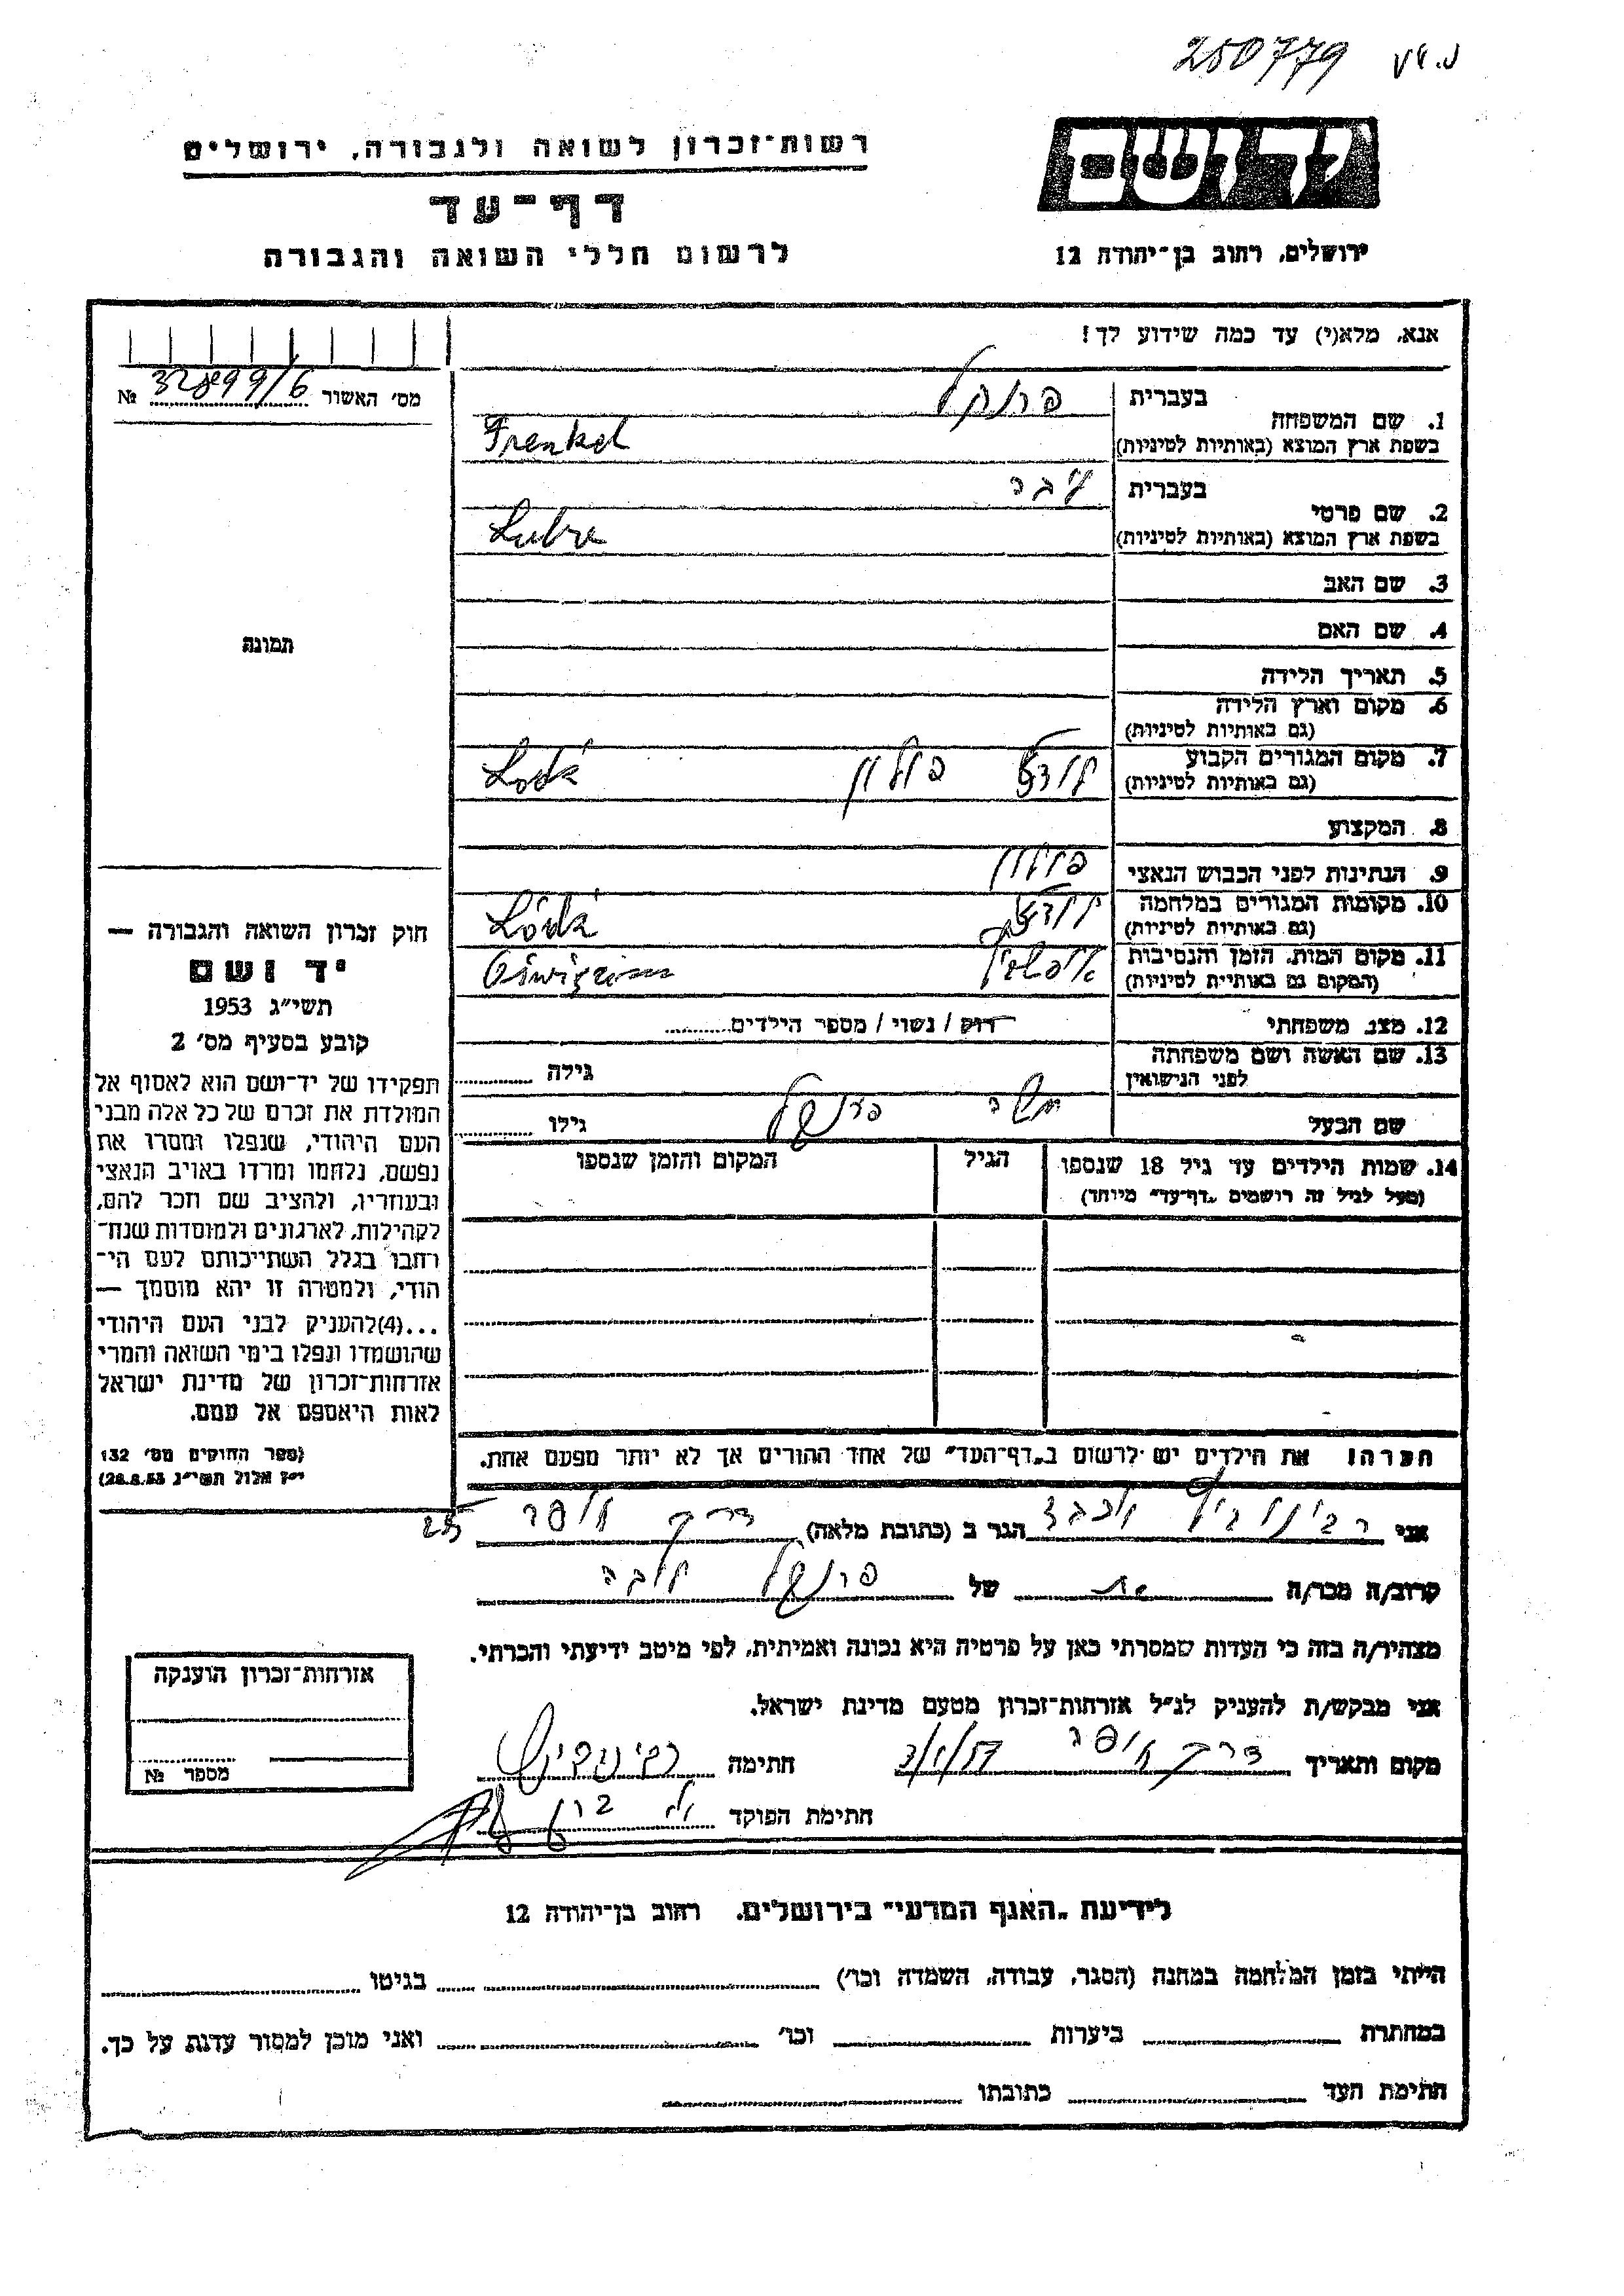 250779
יד ושם
רשות־זכרון לשואה ולגבורה, ירושלים
דף־עד
לרשום חללי השואה והגבורה
ירושלים, רחוב בן־יהודה 12
אנא, מלא(י) עד כמה שידוע לך!
מס׳ האשור 32899/6 №
תמונה
1. שם המשפחה
בעברית פרנקל
בשפת ארץ המוצא (באותיות לטיניות) Frenkel
2. שם פרטי
בעברית
בשפת ארץ המוצא (באותיות לטיניות)
3. שם האב
4. שם האם
5. תאריך הלידה
6. מקום וארץ הלידה
(גם באותיות לטיניות)
7. מקום המגורים הקבוע לודז פולין Lodź
(גם באותיות לטיניות)
8. המקצוע
9. הנתינות לפני הכבוש הנאצי פולין
10. מקומות המגורים במלחמה לודז Lódź
(גם באותיות לטיניות)
11. מקום המות, הזמן והנסיבות
(המקום גם באותיית לטיניות)
12. מצב משפחתי רוק / נשוי / מספר הילדים
13. שם האשה ושם משפחתה
לפני הנישואין גילה
שם הבעל משה פרנקל גילו
14. שמות הילדים עד גיל 18 שנספו הגיל המקום והזמן שנספו
(מעל לגיל זה רושמים „דף־עד״ מיוחד)
חוק זכרון השואה והגבורה —
יד ושם
תשי״ג 1953
קובע בסעיף מס׳ 2
תפקידו של יד־ושם הוא לאסוף אל
המולדת את זכרם של כל אלה מבני
העם היהודי, שנפלו ומסרו את
נפשם, נלחמו ומרדו באויב הנאצי
ובעוזריו, ולהציב שם וזכר להם,
לקהילות, לארגונים ולמוסדות שנח־
רחבו בגלל השתייכותם לעם הי־
הודי, ולמטרה זו יהא מוסמך —
...(4)להעניק לבני העם היהודי
שהושמדו ונפלו בימי השואה והמרי
אזרחות־זכרון של מדינת ישראל
לאות היאספם אל עמם.
(ספר החוקים מס׳ 132
י״ז אלול תשי״ג 28.8.53)
הערה! את הילדים יש לרשום ב„דף־העד״ של אחד ההורים אך לא יותר מפעם אחת.
אני רבינוביץ הגר ב (כתובת מלאה) דרך 25
קרוב/ה מכר/ה של פרנקל ליבה
מצהיר/ה בזה כי העדות שמסרתי כאן על פרטיה היא נכונה ואמיתית, לפי מיטב ידיעתי והכרתי.
אני מבקש/ת להעניק לנ״ל אזרחות־זכרון מטעם מדינת ישראל.
מקום ותאריך דרך חתימה רבינוביץ
חתימת הפוקד
אזרחות־זכרון הוענקה
מספר №
לידיעת „האגף המדעי״ בירושלים, רחוב בן־יהודה 12
הייתי בזמן המלחמה במחנה (הסגר, עבודה, השמדה וכו׳) בגיטו
במחתרת ביערות וכו׳ ואני מוכן למסור עדות על כך.
חתימת העד כתובתו